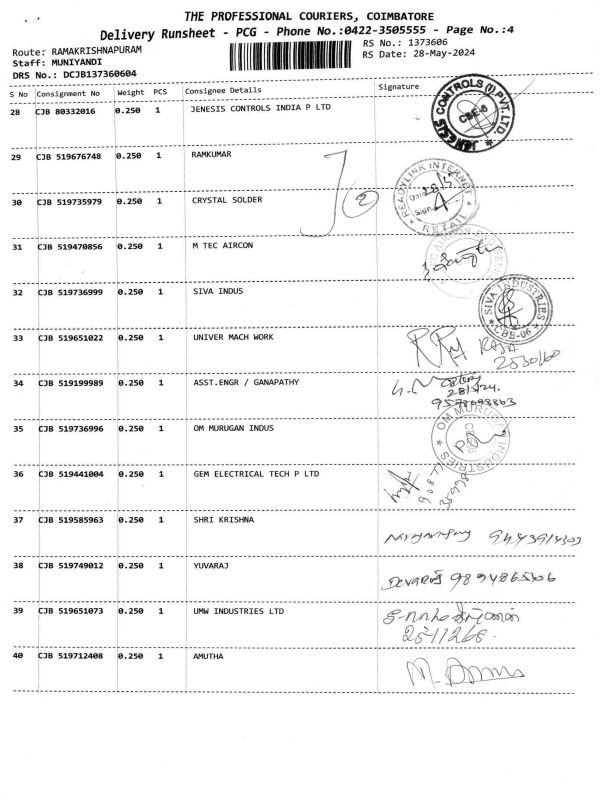 THE PROFESSIONAL COURIERS, COIMBATORE
Delivery Runsheet - PCG - Phone No.:0422-3505555 - Page No.:4
Route: RAMAKRISHNAPURAM
Staff: MUNIYANDI
DRS No.: DCJB137360604
RS No.: 1373606
RS Date: 28-May-2024
S No Consignment No Weight PCS Consignee Details Signature
28 CJB 80332016 0.250 1 JENESIS CONTROLS INDIA P LTD
JENESIS CONTROLS (I) PVT. LTD.
CBE-6
29 CJB 519676748 0.250 1 RAMKUMAR
READYLINK INTERNET
RETAIL
Date
Sign
2
30 CJB 519735979 0.250 1 CRYSTAL SOLDER
31 CJB 519470856 0.250 1 M TEC AIRCON
32 CJB 519736999 0.250 1 SIVA INDUS
SIVA INDUSTRIES
CBE-06
33 CJB 519651022 0.250 1 UNIVER MACH WORK
RAJA
2530160
34 CJB 519199989 0.250 1 ASST.ENGR / GANAPATHY
28/5/24.
35 CJB 519736996 0.250 1 OM MURUGAN INDUS
OM MURUGA INDUSTRIES
36 CJB 519441004 0.250 1 GEM ELECTRICAL TECH P LTD
37 CJB 519585963 0.250 1 SHRI KRISHNA
38 CJB 519749012 0.250 1 YUVARAJ
39 CJB 519651073 0.250 1 UMW INDUSTRIES LTD
40 CJB 519712408 0.250 1 AMUTHA